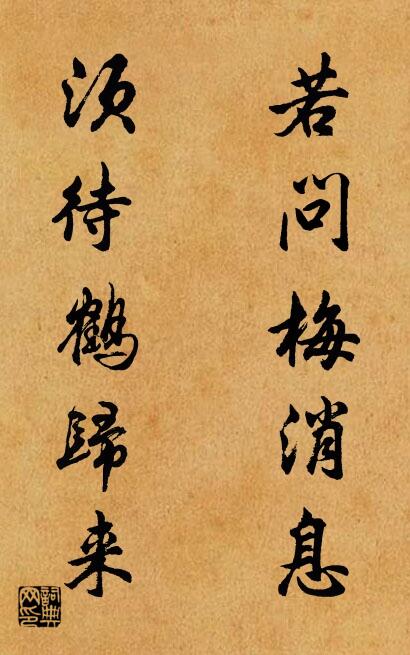 若问梅消息
须待鹤歸来
詞典网印